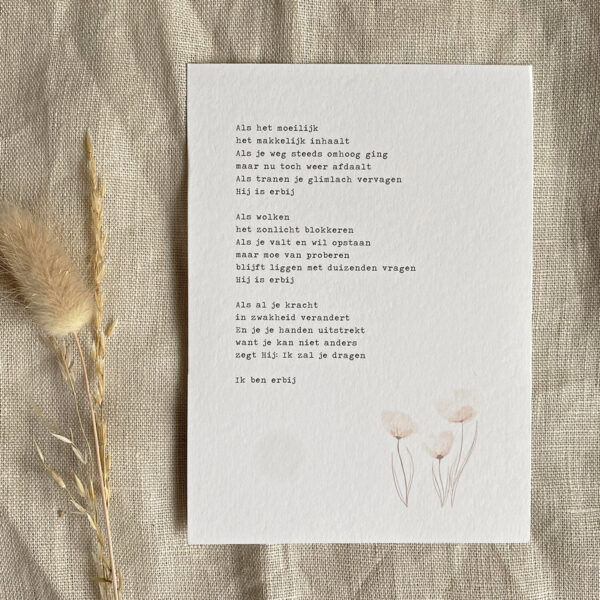 Als het moeilijk
het makkelijk inhaalt
Als je weg steeds omhoog ging
maar nu toch weer afdaalt
Als tranen je glimlach vervagen
Hij is erbij
Als wolken
het zonlicht blokkeren
Als je valt en wil opstaan
maar moe van proberen
blijft liggen met duizenden vragen
Hij is erbij
Als al je kracht
in zwakheid verandert
En je je handen uitstrekt
want je kan niet anders
zegt Hij: Ik zal je dragen
Ik ben erbij